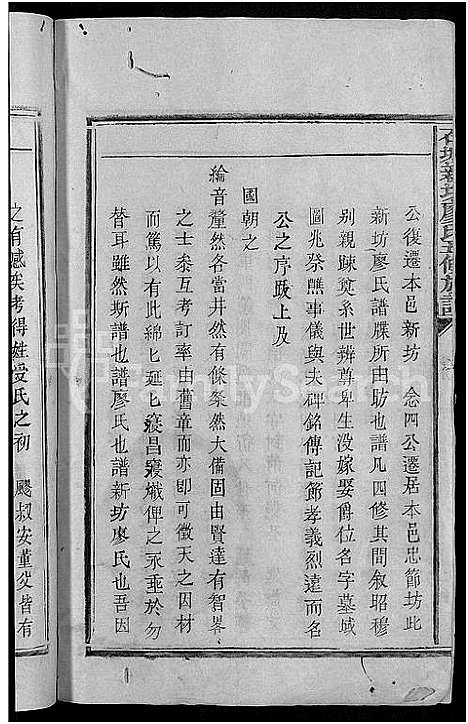 石城新坊廖氏五修族譜
公復遷本邑新坊　念四公遷居本邑忠節坊此
新坊廖氏譜牒所由昉也譜凡四修其間叙昭穆
别親踈奠系世辨尊卑生没嫁娶爵位名字墓域
圖兆祭醮事儀與夫碑銘傳記節孝義烈遠而名
公之序跋上及
國朝之
綸音釐然各當井然有條粲然大備固由賢達有智畧
之士叅互考訂率由舊章而亦即可徵天之因材
而篤以有此綿匕延匕寖昌寖熾俾之永垂於勿
替耳雖然斯譜也譜廖氏也譜新坊廖氏也吾因
之有感矣考得姓受氏之初　颺叔安董父皆有
FamilySearch